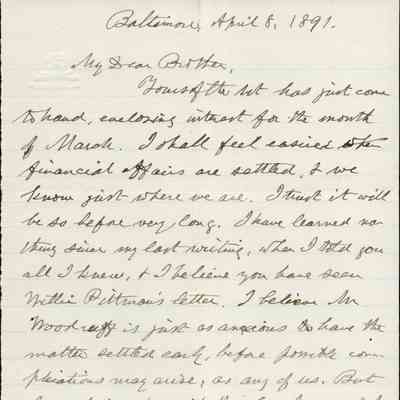 Baltimore, April 8, 1891.
My Dear Brother,
Yours of the 1st has just come
to hand, enclosing interest for the month
of March. I shall feel easier when
financial affairs are settled, & we
know just where we are. I trust it will
be so before very long. I have learned no
thing since my last writing, when I told you
all I knew, & I believe you have seen
Willie Pittman's letter. I believe Mr
Woodruff is just as anxious to have the
matter settled early, before possible com
plications may arise, as any of us. But